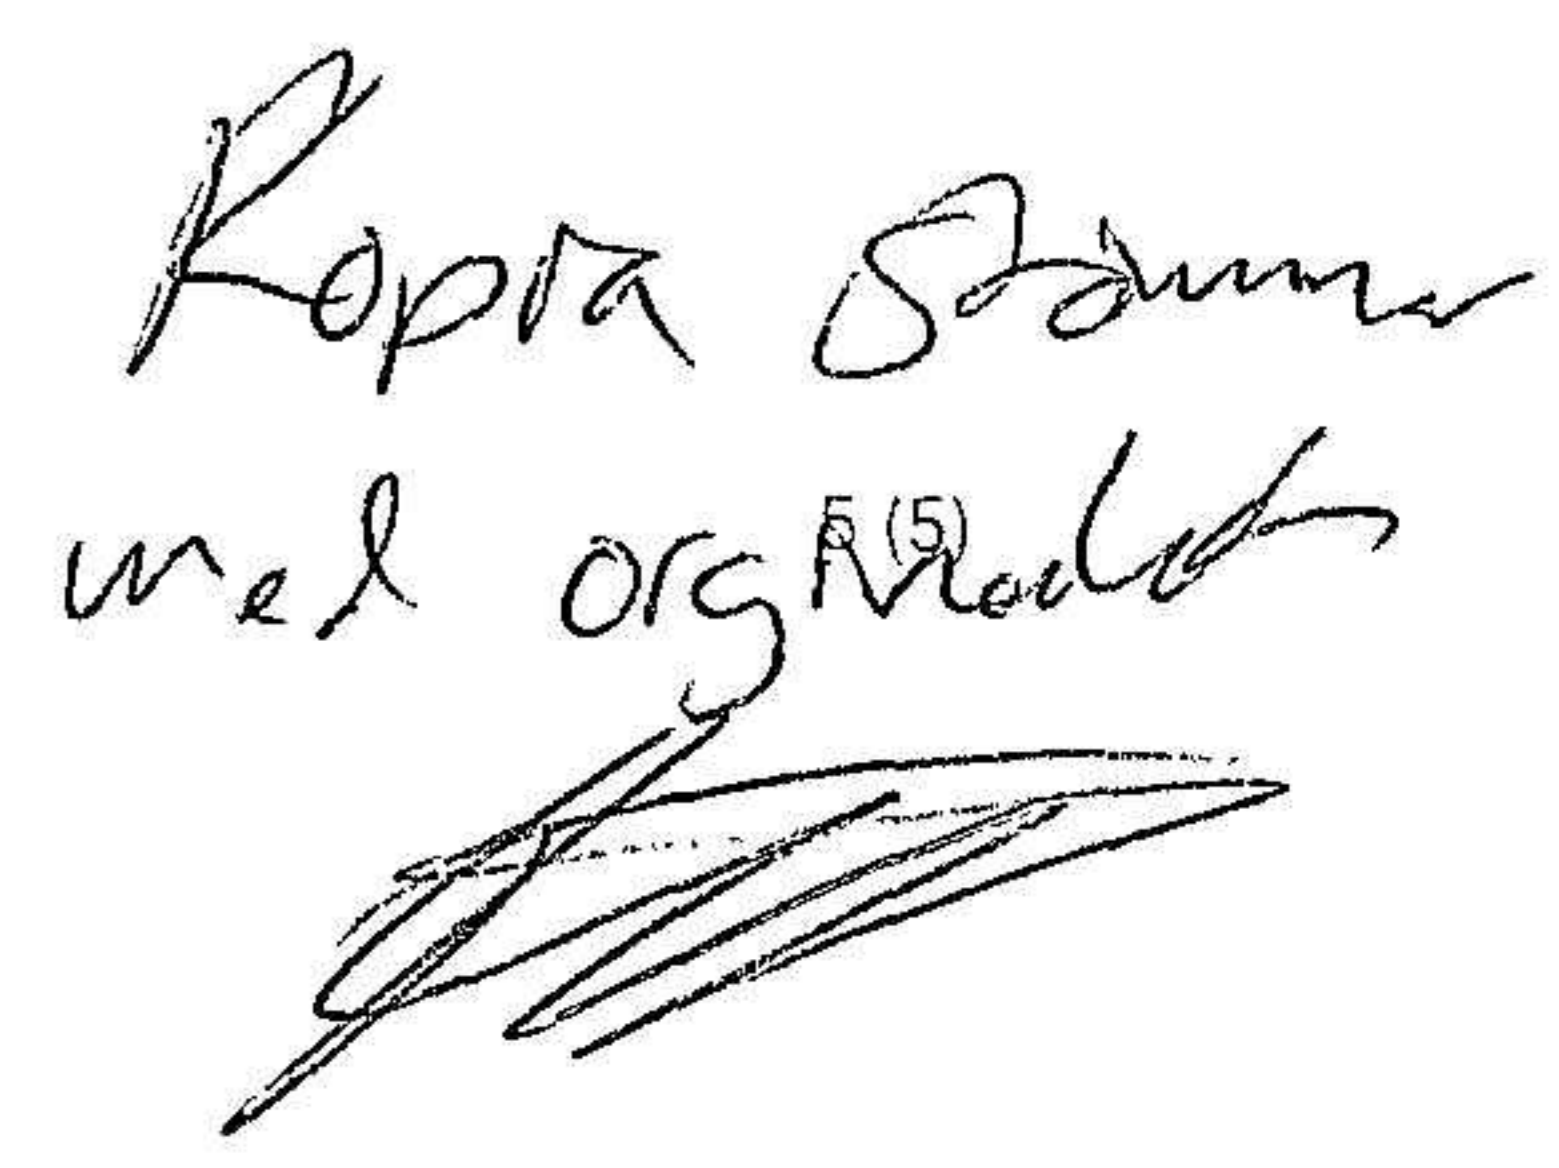 Kopia stämmer
med orginalet
5 (5)